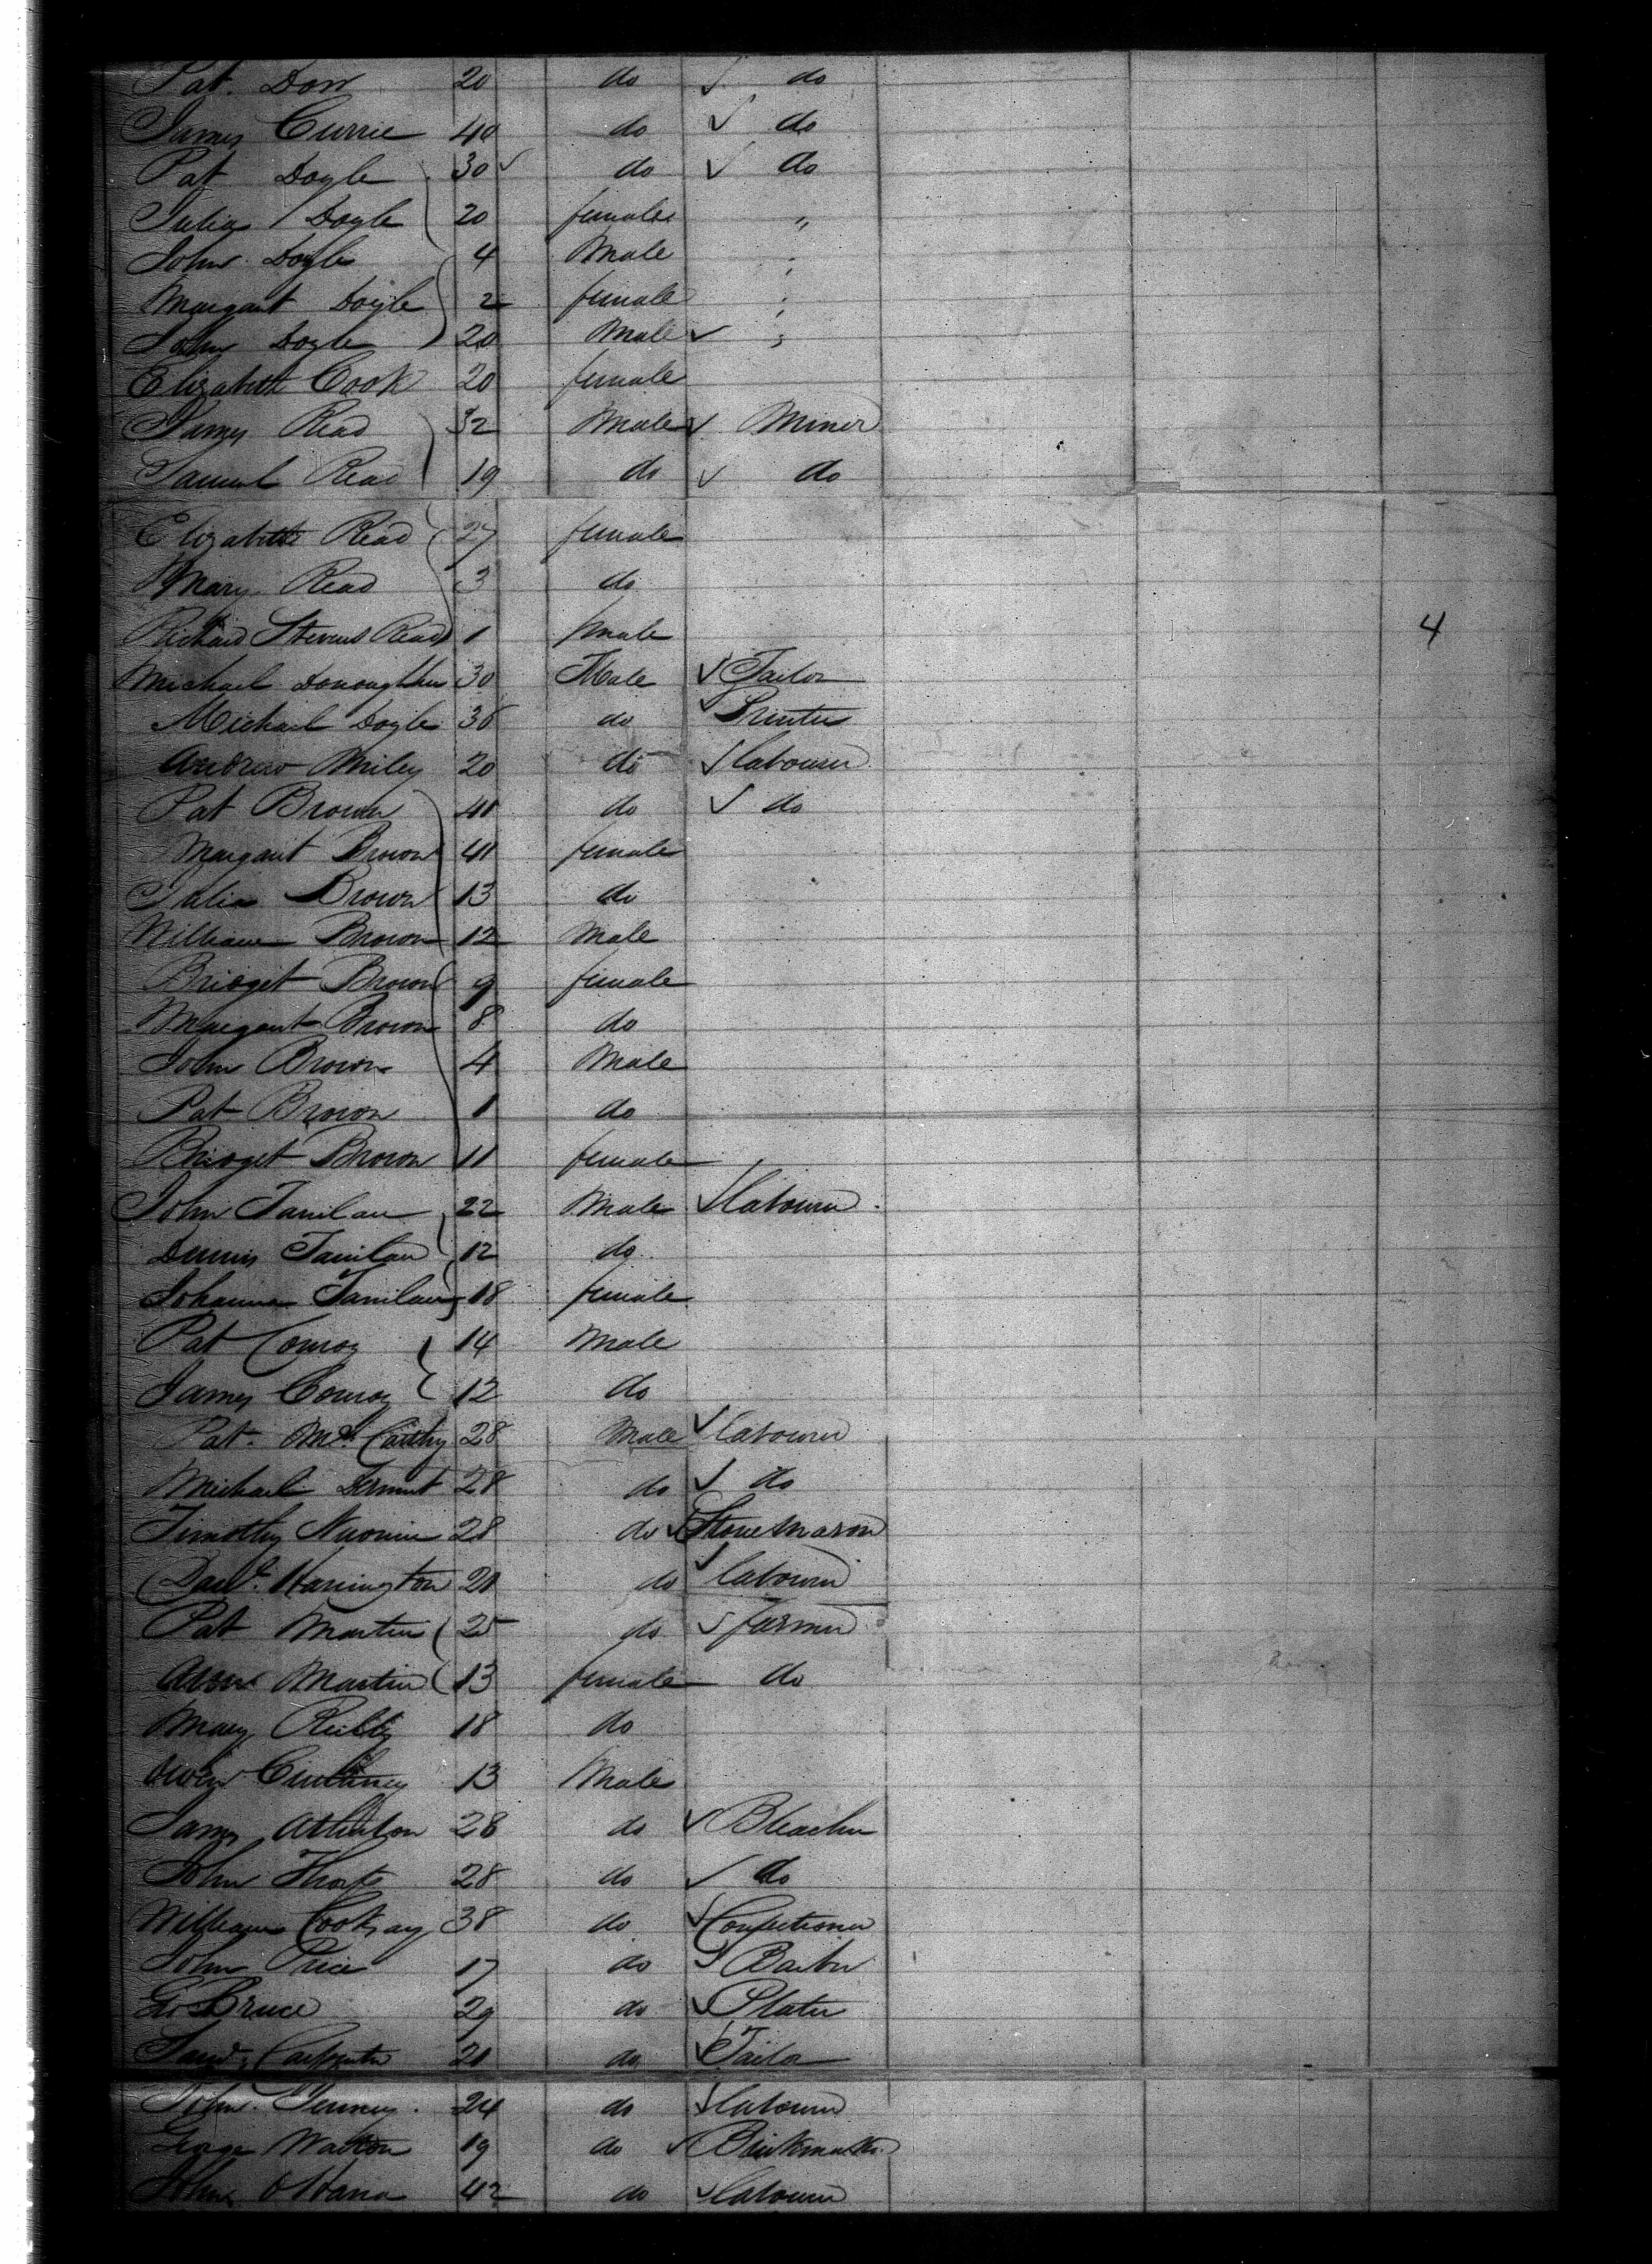 Pat. Dorr 20 do ✓ do
James Currie 40 do ✓ do
Pat Doyle 30 ✓ do ✓ do
Julia Doyle 20 female "
John Doyle 4 Male "
Margaret Doyle 2 female "
John Doyle 20 Male ✓ "
Elizabeth Cook 20 female
James Read 32 Male ✓ Miner
Samuel Read 19 do ✓ do
Elizabeth Read 27 female
Mary Read 3 do
Richard Stevens Read 1 male
4
Michael Donoughhue 30 Male ✓ Tailor
Michael Doyle 38 do ✓ Printer
Andrew Miley 20 do ✓ labourer
Pat Brown 40 do ✓ do
Margaret Brown 40 female
Julia Brown 13 do
William Brown 12 Male
Bridget Brown 9 female
Margaret Brown 8 do
John Brown 4 Male
Pat Brown 1 do
Bridget Brown 11 female
John 22 Male ✓ labourer
Dennis 12 do
Johanna 18 female
Pat Conroy 14 Male
James Conroy 12 do
Pat. McCarthy 28 Male ✓ labourer
Michael Dermit 28 do ✓ do
Timothy 28 do ✓ Stone Mason
Danl. Harrington 20 do ✓ labourer
Pat Martin 25 do ✓ farmer
Ann Martin 13 female do
Mary Reilly 18 do
Owen 13 Male
James Atherton 28 do ✓ Bleacher
John Thorp 28 do ✓ do
William Cooksay 38 do ✓ Confectioner
John Price 17 do ✓ Barber
Geo Bruce 29 do ✓ Plater
Saml. Carpenter 20 do ✓ Tailor
John Penney 24 do ✓ labourer
George Walton 19 do ✓ Brickmaker
John O Hara 42 do ✓ labourer